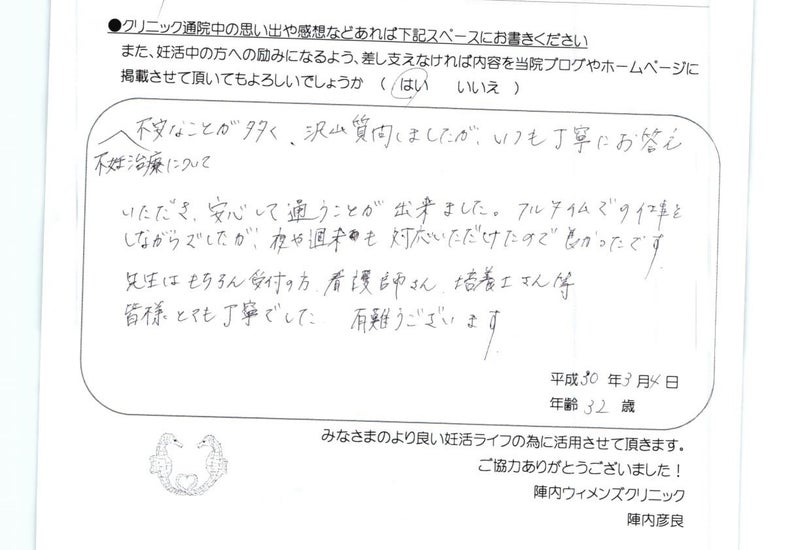 ●クリニック通院中の思い出や感想などあれば下記スペースにお書きください
また、妊活中の方への励みになるよう、差し支えなければ内容を当院ブログやホームページに
掲載させて頂いてもよろしいでしょうか （ はい いいえ ）
不安なことが多く、沢山質問しましたが、いつも丁寧にお答え
不妊治療について
いただき、安心して通うことが出来ました。フルタイムでの仕事を
しながらでしたが、夜や週末も対応いただけたので良かったです
先生はもちろん受付の方、看護師さん、培養士さん等
皆様とても丁寧でした 有難うございます
平成30年3月4日
年齢 32 歳
みなさまのより良い妊活ライフの為に活用させて頂きます。
ご協力ありがとうございました！
陣内ウィメンズクリニック
陣内彦良